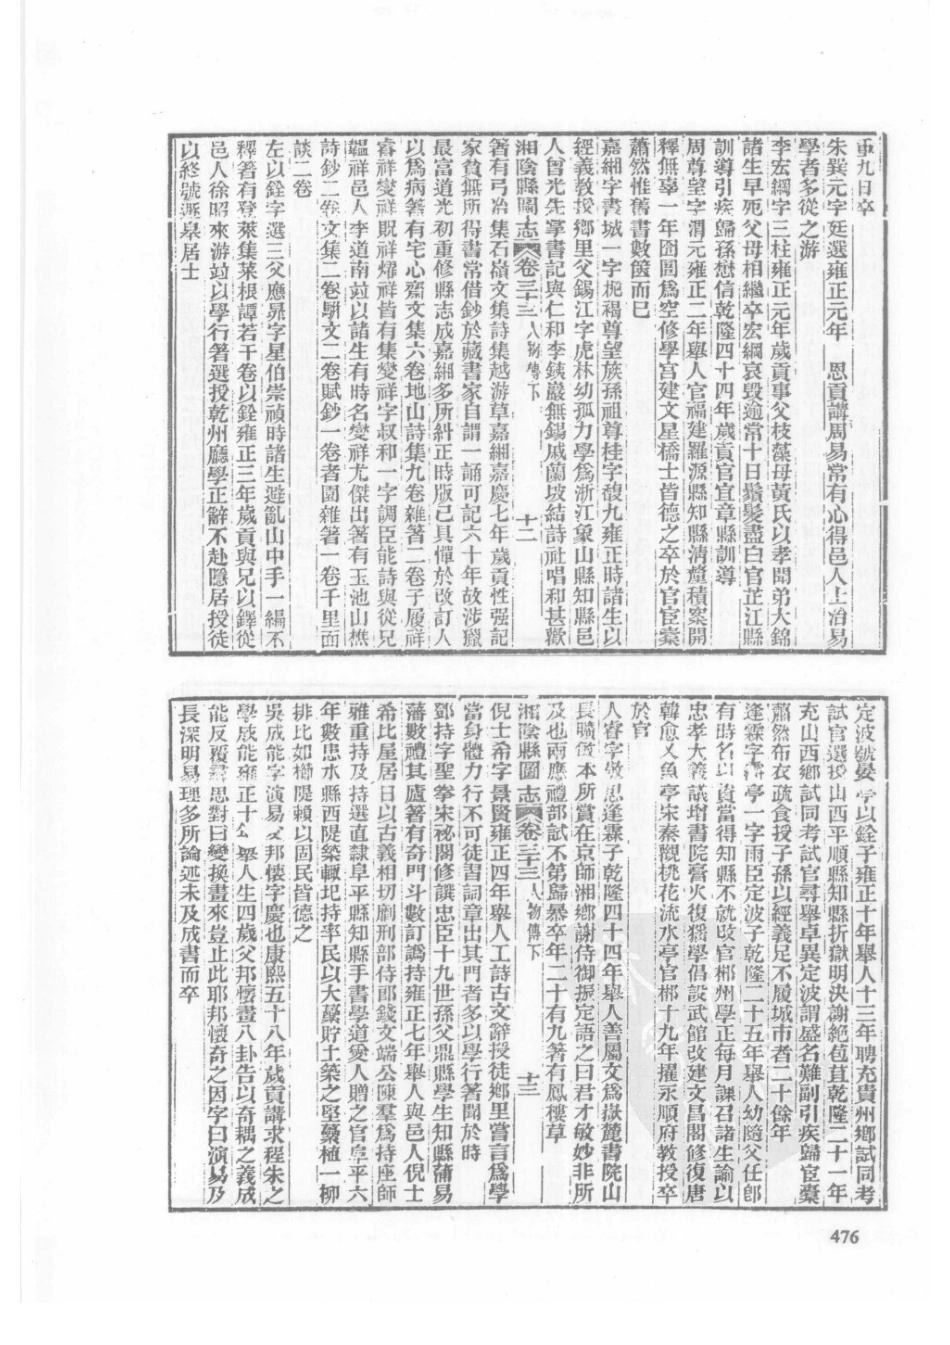 重九日卒
朱巽元字廷選雍正元年　恩貢講周易常有心得邑人上治易
學者多從之游
李宏綱字三柱雍正元年歲貢事父枝藻母黃氏以孝聞弟大錦
諸生早死父母相繼卒宏綱哀毀逾常十日鬚髮盡白官芷江縣
訓導引疾歸孫懋信乾隆四十四年歲貢官宜章縣訓導
周尊望字渭元雍正二年舉人官福建羅源縣知縣清釐積案開
釋無辜一年囹圄爲空修學宮建文星橋士皆德之卒於官宦橐
蕭然惟舊書數篋而已
嘉緗字書城一字梔禢尊望族孫祖尊桂字馥九雍正時諸生以
經義教授鄉里父錫江字虎林幼孤力學爲浙江象山縣知縣邑
人曾光先掌書記與仁和李銕巖無錫戚蘭坡結詩社唱和甚歡
湘陰縣圖志　卷三十三　人物傳下　十二
著有弓冶集石嶺文集詩集越游草嘉緗嘉慶七年歲貢性强記
家貧無所得書常借鈔於藏書家自謂一誦可記六十年故涉獵
最富道光初重修縣志成嘉緗多所糾正時版已具憚於改訂人
以爲病著有宅心齋文集六卷地山詩集九卷雜著二卷子履祥
睿祥燮祥貺祥燿祥皆有集燮祥字叔和一字調臣能詩與從兄
韞祥邑人李道南竝以諸生有時名燮祥尤傑出著有玉池山樵
詩鈔二卷文集二卷駢文二卷賦鈔一卷者園雜著一卷千里面
談二卷
左以銓字選三父應㫟字星伯崇禎時諸生避亂山中手一編不
釋著有登萊集菜根譚若干卷以銓雍正三年歲貢與兄以鐸從
邑人徐昭來游竝以學行著選授乾州廳學正辭不赴隱居授徒
以終號遯皋居士
定波號晏亭以銓子雍正十年舉人十三年聘充貴州鄉試同考
試官選授山西平順縣知縣折獄明決謝絕苞苴乾隆二十一年
充山西鄉試同考試官尋舉卓異定波謂盛名難副引疾歸宦橐
蕭然布衣疏食授子孫以經義足不履城市者二十餘年
逢霖字亭一字雨臣定波子乾隆二十五年舉人幼隨父任卽
有時名以貲當得知縣不就改官郴州學正每月課召諸生諭以
忠孝大義議增書院膏火復猺學倡設武館改建文昌閣修復唐
韓愈乂魚亭宋秦觀桃花流水亭官郴十九年擢永順府教授卒
於官
人睿字敬思逢霖子乾隆四十四年舉人善屬文爲嶽麓書院山
長曠敏本所賞在京師湘鄉謝侍御振定語之曰君才敏妙非所
及也兩應禮部試不第歸暴卒年二十有九著有鳳樓草
湘陰縣圖志　卷三十三　人物傳下　十三
倪士希字景賢雍正四年舉人工詩古文辭授徒鄉里嘗言爲學
當身體力行不可徒習詞章出其門者多以學行著聞於時
鄧持字聖拳宋祕閣修譔忠臣十九世孫父鼎縣學生知縣蒲易
藩數禮其廬著有奇門斗數訂譌持雍正七年舉人與邑人倪士
希比屋居日以古義相切劘刑部侍郎錢文端公陳羣爲持座師
雅重持及持選直隸阜平縣知縣手書學道愛人贈之官阜平六
年數患水縣西隄築輒圮持率民以大橐貯土築之堅橐植一柳
排比如櫛隄賴以固民皆德之
吳成能字演易父邦懷字慶也康熙五十八年歲貢講求程朱之
學成能雍正十年舉人生四歲父邦懷畫八卦告以奇耦之義成
能反覆尋思對曰變換畫來豈止此耶邦懷奇之因字曰演易及
長深明易理多所論述未及成書而卒
476